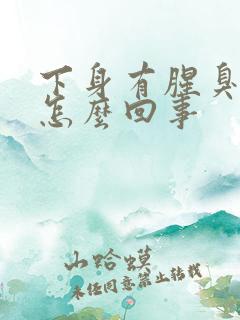 下身有腥臭
怎么回事
山蛤蟆
未经同意禁止转载